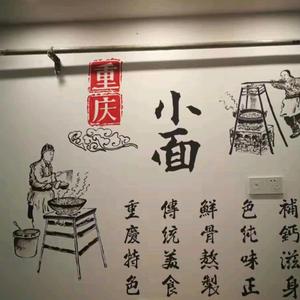 重庆
小面
補鈣滋身
色純味正
鮮骨熬製
傳統美食
重慶特色